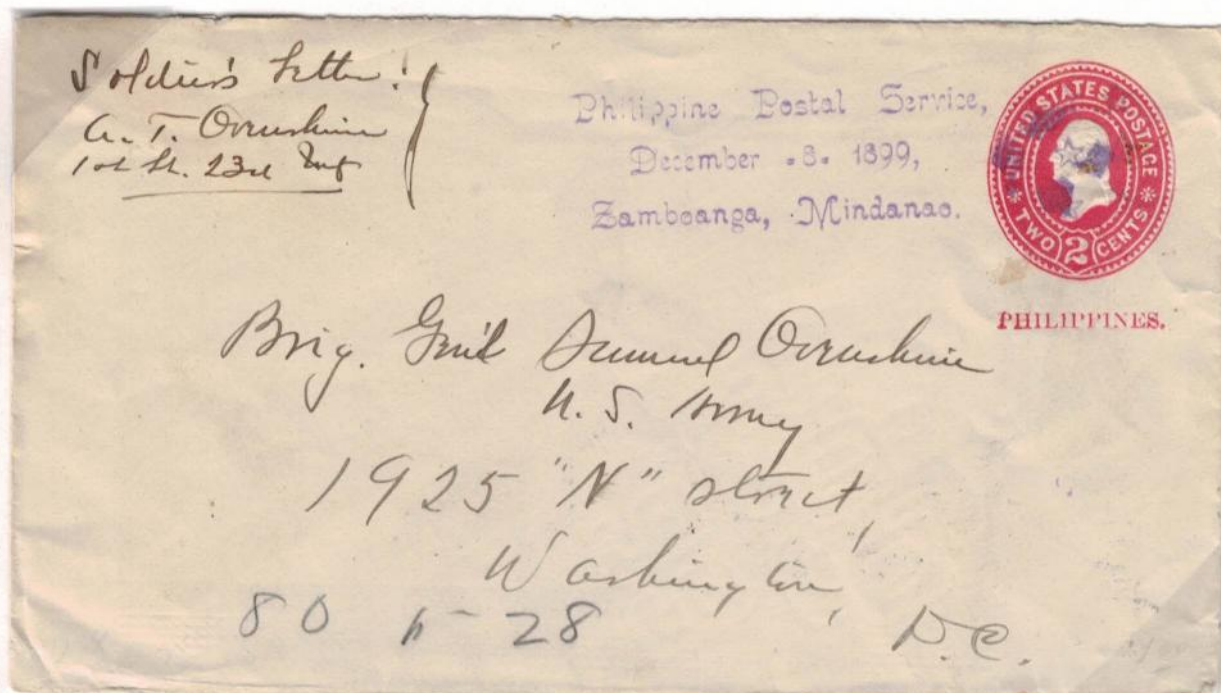 Soldier's Letter!
A. T. Ovenshine
1st Lt. 23rd Inf
Philippine Postal Service,
December .8. 1899,
Zamboanga, Mindanao.
UNITED STATES POSTAGE
TWO 2 CENTS
PHILIPPINES.
Brig. Gen'l Samuel Ovenshine
U. S. Army
1925 "N" street,
Washington,
D.C.
80 28